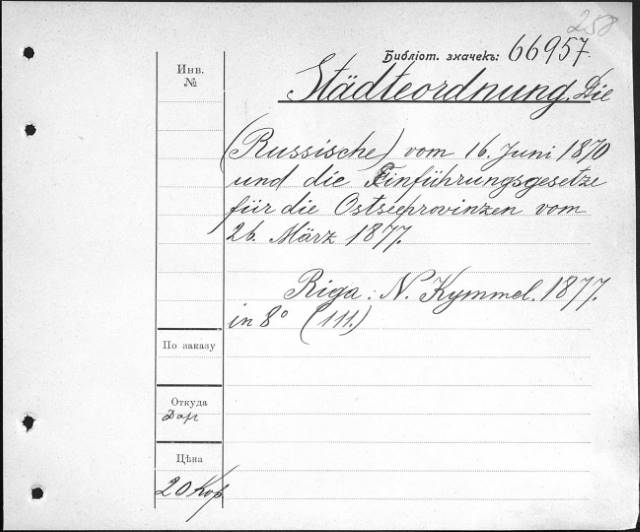 258
Библіот. значекъ: 66957
Инв.
№
Städteordnung. Die
(Russische) vom 16. Juni 1870
und die Einführungsgesetze
für die Ostseeprovinzen vom
26. März 1877.
Riga: N. Kymmel. 1877.
in 8° (111.)
По заказу
Откуда
Дар
Цѣна
20 Коp.